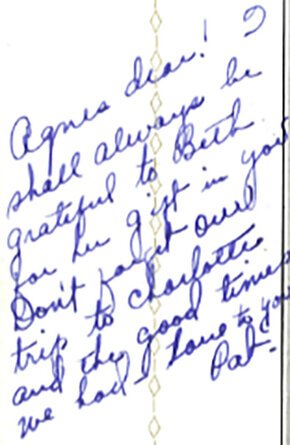 Agnes dear! I
shall always be
grateful to Beth
for her gift in you
Don't forget our
trip to Charlotte
and the good times
we had - Love to you
Pat -